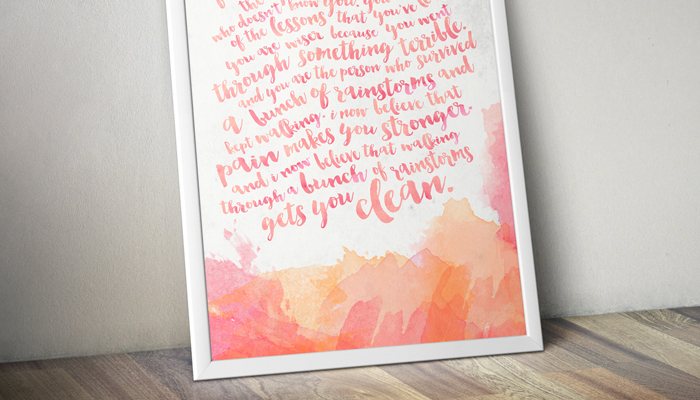 the
who doesn't know you, you
of the lessons that you've
you are wiser because you went
through something terrible.
and you are the person who survived
a bunch of rainstorms and
kept walking. i now believe that
pain makes you stronger.
and i now believe that walking
through a bunch of rainstorms
gets you clean.